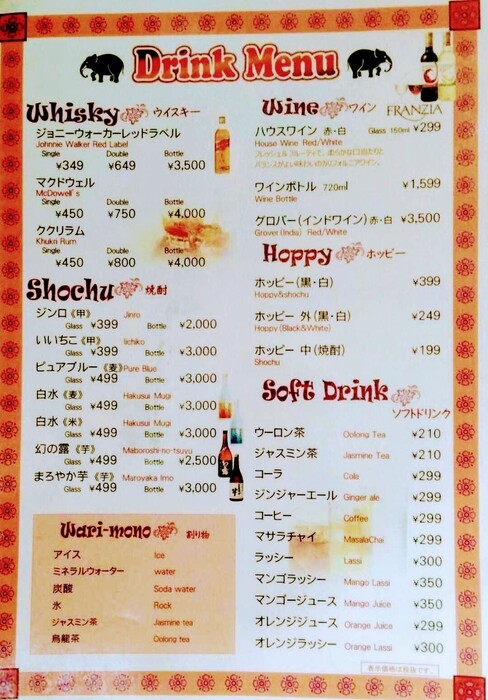 Drink Menu
Whisky ウイスキー
ジョニーウォーカーレッドラベル
Johnnie Walker Red Label
Single Double Bottle
¥349 ¥649 ¥3,500
マクドウェル
McDowell's
Single Double Bottle
¥450 ¥750 ¥4,000
ククリラム
Khukri Rum
Single Double Bottle
¥450 ¥800 ¥4,000
Shochu 焼酎
ジンロ《甲》 Jinro
Glass ¥399 Bottle ¥2,000
いいちこ《甲》 Iichiko
Glass ¥399 Bottle ¥3,000
ピュアブルー《麦》 Pure Blue
Glass ¥499 Bottle ¥3,000
白水《麦》 Hakusui Mugi
Glass ¥499 Bottle ¥3,000
白水《米》 Hakusui Mugi
Glass ¥499 Bottle ¥3,000
幻の露《芋》 Maboroshi-no-tsuyu
Glass ¥499 Bottle ¥2,500
まろやか芋《芋》 Maroyaka Imo
Glass ¥499 Bottle ¥3,000
Wari-mono 割り物
アイス Ice
ミネラルウォーター water
炭酸 Soda water
氷 Rock
ジャスミン茶 Jasmine tea
烏龍茶 Oolong tea
Wine ワイン FRANZIA
ハウスワイン 赤・白 Glass 150ml ¥299
House Wine Red/White
フレッシュ&フルーティで、柔らかな口当たりと
バランスがよい味わいのカリフォルニアワイン。
ワインボトル 720ml ¥1,599
Wine Bottle
グロバー(インドワイン)赤・白 ¥3,500
Grover(India) Red/White
Hoppy ホッピー
ホッピー(黒・白) ¥399
Hoppy&shochu
ホッピー 外(黒・白) ¥249
Hoppy(Black&White)
ホッピー 中(焼酎) ¥199
Shochu
Soft Drink
ソフトドリンク
ウーロン茶 Oolong Tea ¥210
ジャスミン茶 Jasmine Tea ¥210
コーラ Cola ¥299
ジンジャーエール Ginger ale ¥299
コーヒー Coffee ¥299
マサラチャイ MasalaChai ¥299
ラッシー Lassi ¥300
マンゴラッシー Mango Lassi ¥350
マンゴージュース Mango Juice ¥350
オレンジジュース Orange Juice ¥299
オレンジラッシー Orange Lassi ¥300
表示価格は税抜です。